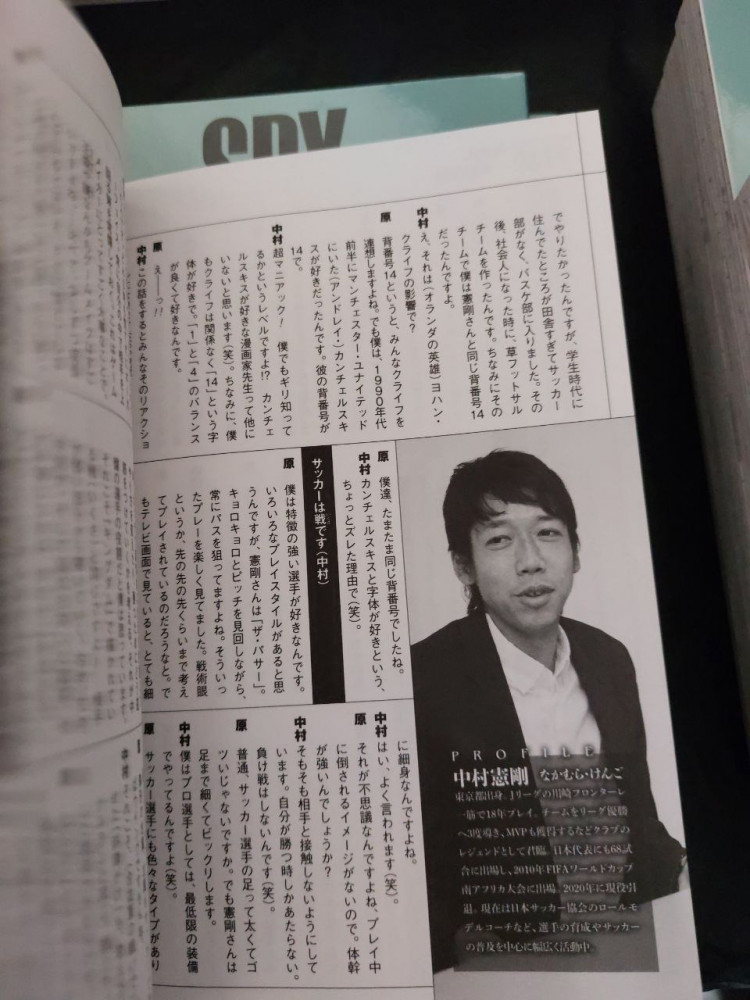 SPY
でやりたかったんですが、学生時代に
住んでたところが田舎すぎてサッカー
部がなく、バスケ部に入りました。その
後、社会人になった時に、草フットサル
チームを作ったんです。ちなみにその
チームで僕は憲剛さんと同じ背番号14
だったんですよ。
中村 え、それは(オランダの英雄)ヨハン・
クライフの影響で?
原 背番号14というと、みんなクライフを
連想しますよね。でも僕は、1990年代
前半にマンチェスター・ユナイテッド
にいた(アンドレイ・)カンチェルスキ
スが好きだったんです。彼の背番号が
14で。
中村 超マニアック! 僕でもギリ知って
るかというレベルですよ!? カンチェ
ルスキスが好きな漫画家先生って他に
いないと思います(笑)。ちなみに、僕
もクライフは関係なく「14」という字
体が好きで。「1」と「4」のバランス
が良くて好きなんです。
原 えーっ!?
中村 この話をするとみんなそのリアクショ
原 僕達、たまたま同じ背番号でしたね。
中村 カンチェルスキスと字体が好きという、
ちょっとズレた理由で(笑)。
サッカーは戦です(中村)
原 僕は特徴の強い選手が好きなんです。
いろいろなプレイスタイルがあると思
うんですが、憲剛さんは「ザ・パサー」。
キョロキョロとピッチを見回しながら、
常にパスを狙ってますよね。そういっ
たプレーを楽しく見てました。戦術眼
というか、先の先の先くらいまで考え
てプレイされているのだろうなと。で
もテレビ画面で見ていると、とても細
に細身なんですよね。
中村 はい、よく言われます(笑)。
原 それが不思議なんですよね、プレイ中
に倒されるイメージがないので。体幹
が強いんでしょうか?
中村 そもそも相手と接触しないようにして
います。自分が勝つ時しかあたらない。
負け戦はしないんです(笑)。
原 普通、サッカー選手の足って太くてゴ
ツいじゃないですか。でも憲剛さんは
足まで細くてビックリします。
中村 僕はプロ選手としては、最低限の装備
でやってるんですよ(笑)。
原 サッカー選手にも色々なタイプがあり
PROFILE
中村憲剛 なかむら・けんご
東京都出身。Jリーグの川崎フロンターレ
一筋で18年プレイ。チームをリーグ優勝
へ3度導き、MVPも獲得するなどクラブの
レジェンドとして君臨。日本代表にも68試
合に出場し、2010年FIFAワールドカップ
南アフリカ大会に出場。2020年に現役引
退。現在は日本サッカー協会のロールモ
デルコーチなど、選手の育成やサッカー
の普及を中心に幅広く活動中。